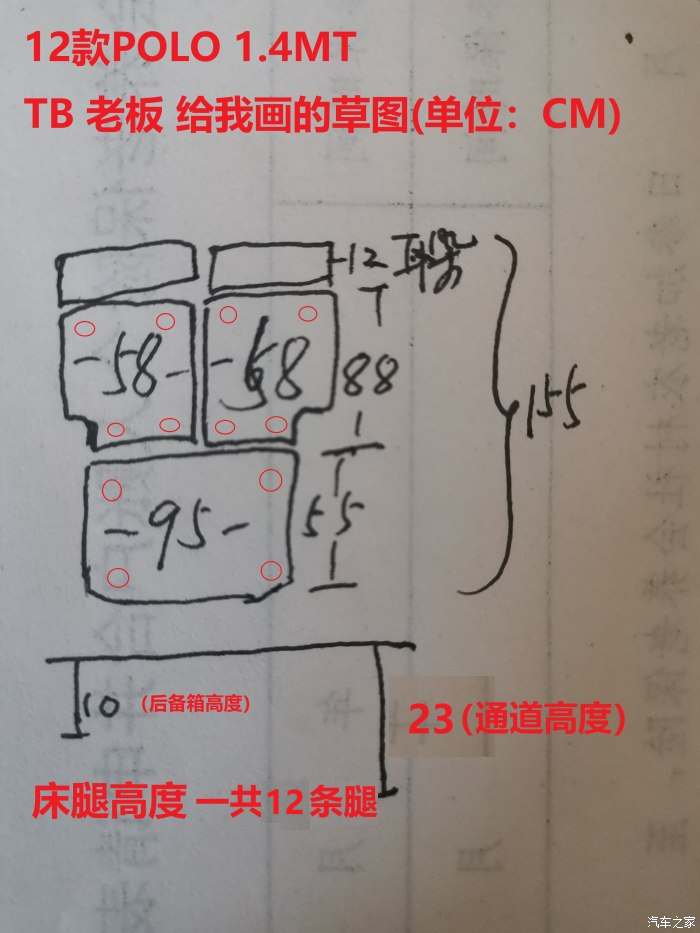 12款POLO 1.4MT
TB 老板 给我画的草图(单位：CM)
12
-58-
-58
88
155
-95-
55
10
(后备箱高度)
23(通道高度)
床腿高度 一共12条腿
汽车之家